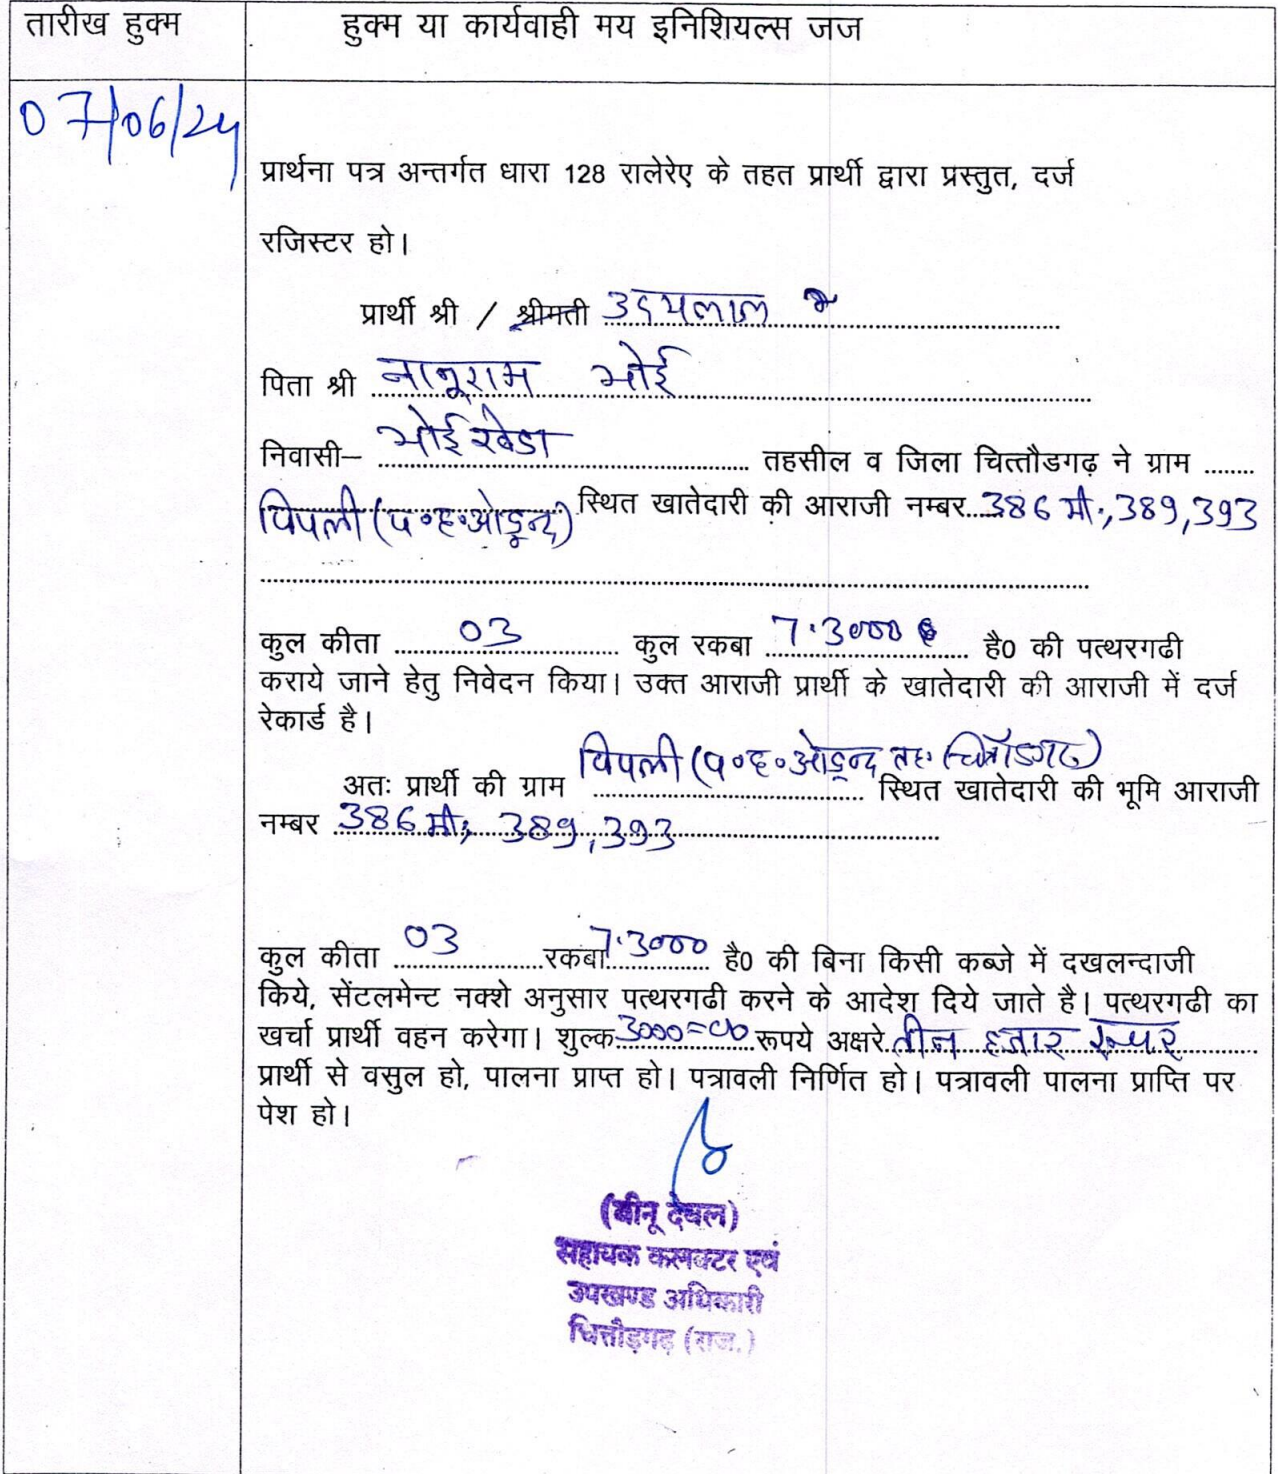 तारीख हुक्म
हुक्म या कार्यवाही मय इनिशियल्स जज
07/06/24
प्रार्थना पत्र अन्तर्गत धारा 128 रालेरेए के तहत प्रार्थी द्वारा प्रस्तुत, दर्ज
रजिस्टर हो।
प्रार्थी श्री / श्रीमती उदयलाल
पिता श्री नानूराम भोई
निवासी– भोईखेडा तहसील व जिला चित्तौडगढ़ ने ग्राम
पिपली (प०ह०ओडून्द) स्थित खातेदारी की आराजी नम्बर 386 मी., 389, 393
कुल कीता 03 कुल रकबा 7.3000 है0 की पत्थरगढी
कराये जाने हेतु निवेदन किया। उक्त आराजी प्रार्थी के खातेदारी की आराजी में दर्ज
रेकार्ड है।
पिपली (प०ह०ओडून्द तह. चित्तौडगढ)
अतः प्रार्थी की ग्राम स्थित खातेदारी की भूमि आराजी
नम्बर 386 मी., 389, 393
कुल कीता 03 रकबा 7.3000 है0 की बिना किसी कब्जे में दखलन्दाजी
किये, सेंटलमेन्ट नक्शे अनुसार पत्थरगढी करने के आदेश दिये जाते है। पत्थरगढी का
खर्चा प्रार्थी वहन करेगा। शुल्क 3000=00 रूपये अक्षरे तीन हजार रूपए
प्रार्थी से वसुल हो, पालना प्राप्त हो। पत्रावली निर्णित हो। पत्रावली पालना प्राप्ति पर
पेश हो।
(बीनू देवल)
सहायक कलक्टर एवं
उपखण्ड अधिकारी
चित्तौड़गढ़ (राज.)